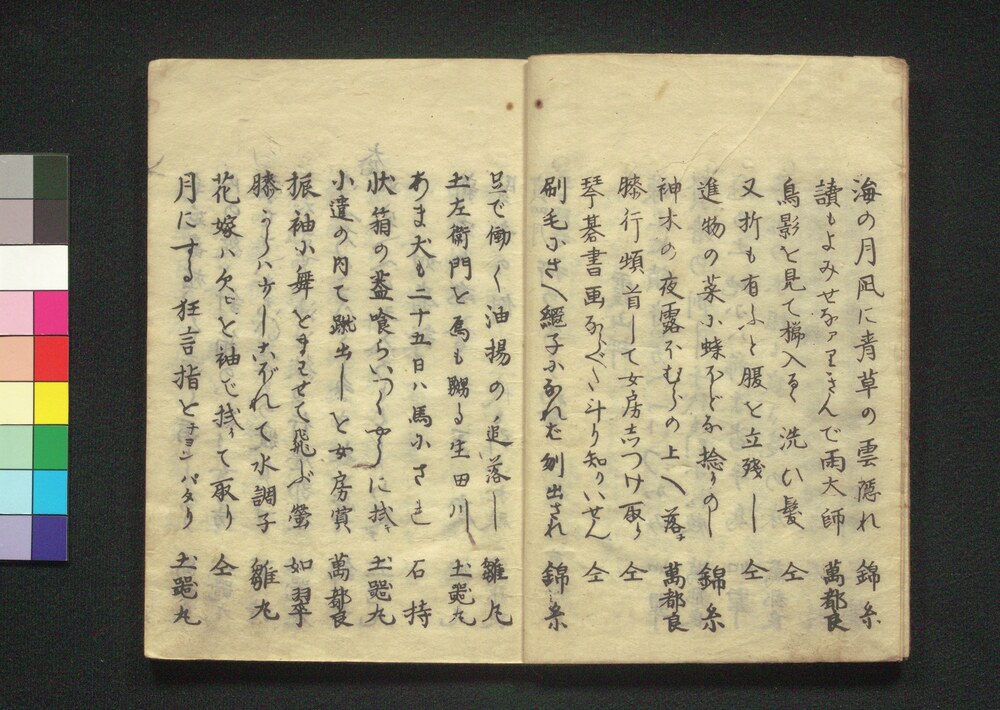 海の月凩に青草の雲隠れ 錦糸
讀もよみせなアりさんで雨大師 萬都良
鳥影を見て櫛入るゝ洗ひ髪 仝
又折も有ふと腹を立残し 仝
進物の菜小蝶などな捻りのし 錦糸
神木の夜露不むらの上へ落 萬都良
膝行頓首して女房㐂つけ取り 仝
琴碁書画ならべ斗り知りいせん 仝
刷毛小さへ繩子小なれど刎出され 錦糸
足で働く油揚の追落し 雛丸
土左衛門と為も嬲る生田川 土器丸
あま犬も二十五日ハ馬小され 石持
状箱の蓋喰らいつくやうに拭キ 土器丸
小遣の内て蹴出しと女房賞 萬都良
振袖小舞とませて飛ぶ螢 如翠
膝うらハ少しこぼれて水調子 雛丸
花嫁ハ欠ヒと袖で拭ィて取り 仝
月にする狂言指とチヨンバタリ 土器丸